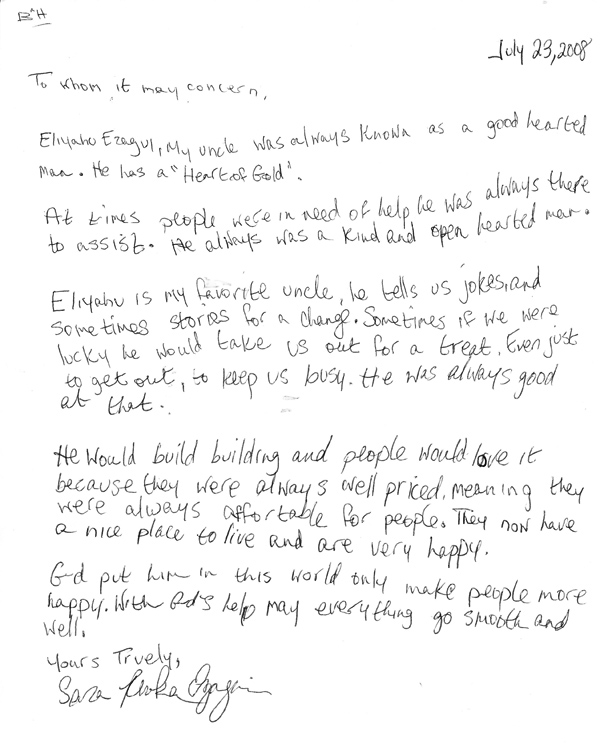 B"H
July 23, 2008
To whom it may concern,
Eliyahu Ezagui, My uncle was always known as a good hearted
man. He has a "Heart of Gold".
At times people were in need of help he was always there
to assist. He always was a kind and open hearted man.
Eliyahu is my favorite uncle, he tells us jokes, and
sometimes stories for a change. Sometimes if we were
lucky he would take us out for a treat. Even just
to get out, to keep us busy. He was always good
at that.
He would build building and people would love it
because they were always well priced, meaning they
were always affortable for people. They now have
a nice place to live and are very happy.
G-d put him in this world only make people more
happy. With G-d's help may everything go smooth and
well.
Yours Truely,
Sara